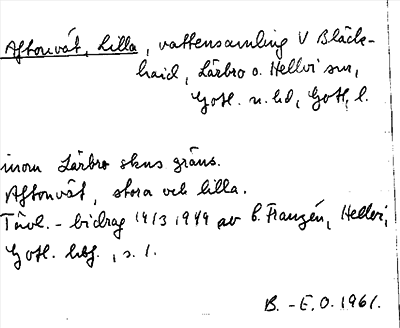 Aftonvät, Lilla, vattensamling V Bläck-
haid, Lärbro o. Hellvi snr,
Gotl. n. hd, Gotl. l.
inom Lärbro skns gräns.
Aftonvät, stora och lilla.
Tävl.-bidrag 14/3 1949 av E. Franzén, Hellvi,
Gotl. hbf., s. 1.
B. - E. O. 1961.